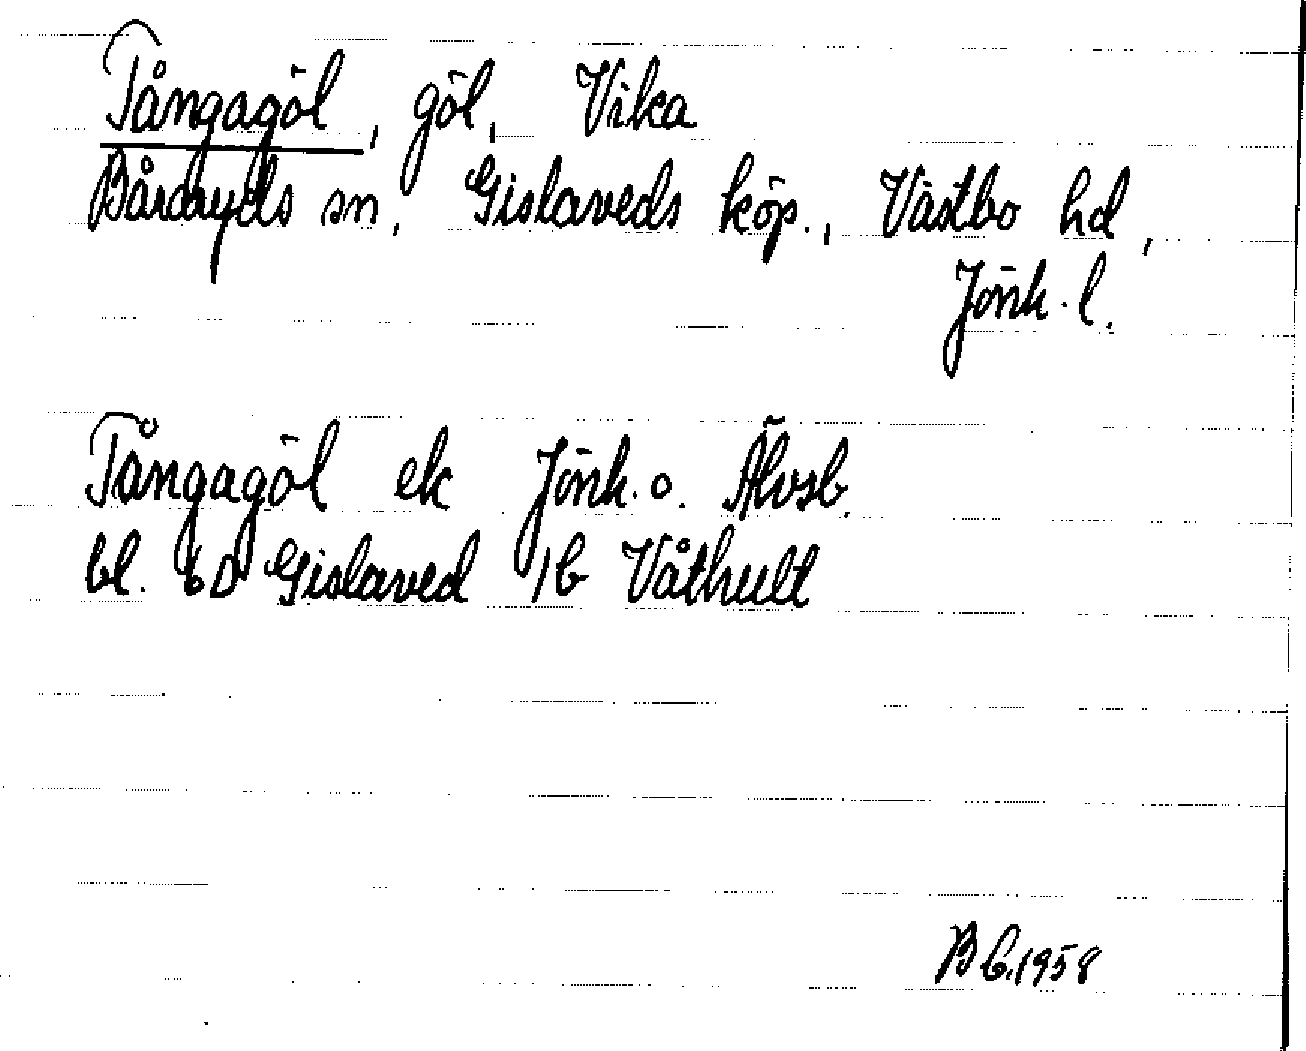 Tångagöl, göl, Vika
Båraryds sn, Gislaveds köp., Västbo hd,
Jönk. l.
Tångagöl ek Jönk. o. Älvsb.
bl. 6D Gislaved 1b Våthult
BL.1958